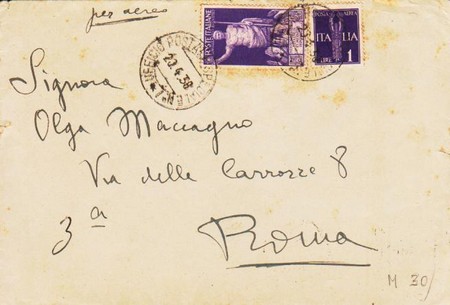 per aereo
POSTE ITALIANE
POSTA AEREA
ITALIA
LIRE 1
UFFICIO POSTALE SPECIALE
20.4.38
Signora
Olga Maccagno
Via delle Carrozze 8
3ª
Roma
M 30